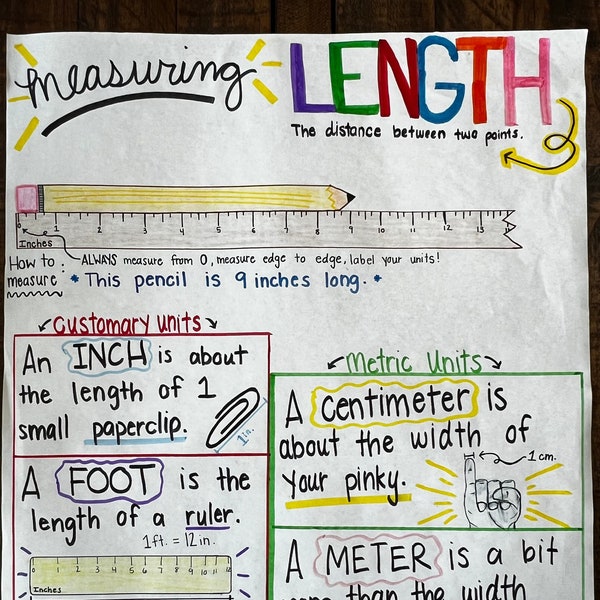 measuring LENGTH
The distance between two points.
0 1 2 3 4 5 6 7 8 9 10 11 12 13
Inches
How to measure : ALWAYS measure from 0, measure edge to edge, label your units!
* This pencil is 9 inches long. *
customary units
An INCH is about
the length of 1
small paperclip.
1 in.
A FOOT is the
length of a ruler.
1 ft. = 12 in.
0 1 2 3 4 5 6 7 8 9 10 11 12
Inches
Metric Units
A centimeter is
about the width of
your pinky.
1 cm.
A METER is a bit
more than the width